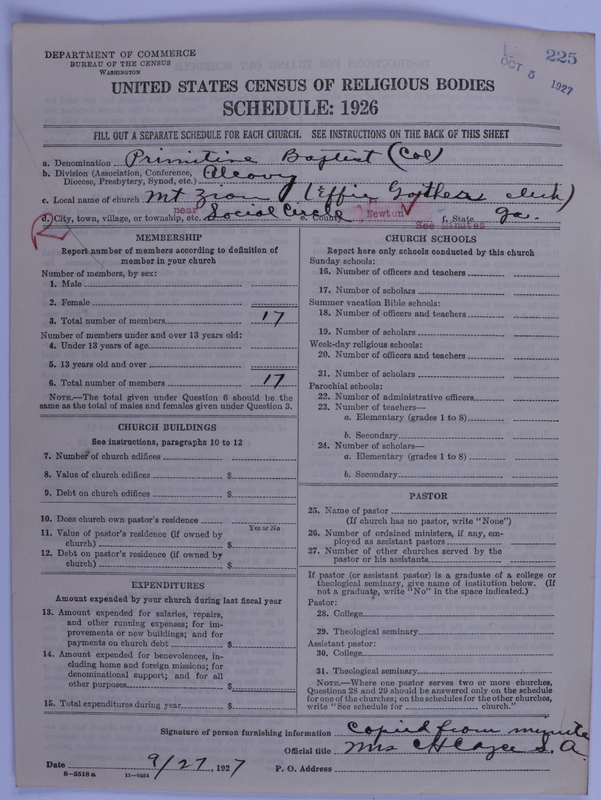 DEPARTMENT OF COMMERCE
BUREAU OF THE CENSUS
WASHINGTON
225
OCT 5 1927
UNITED STATES CENSUS OF RELIGIOUS BODIES
SCHEDULE: 1926
FILL OUT A SEPARATE SCHEDULE FOR EACH CHURCH. SEE INSTRUCTIONS ON THE BACK OF THIS SHEET
a. Denomination Primitive Baptist (Col)
b. Division (Association, Conference, Diocese, Presbytery, Synod, etc.) Alcovy
c. Local name of church Mt Zion (Effie Gaither clerk)
d. City, town, village, or township, etc. near Social Circle e. County Newton f. State Ga.
See Minutes
MEMBERSHIP
Report number of members according to definition of
member in your church
Number of members, by sex:
1. Male
2. Female
3. Total number of members 17
Number of members under and over 13 years old:
4. Under 13 years of age
5. 13 years old and over
6. Total number of members 17
NOTE.—The total given under Question 6 should be
same as the total of males and females given under Question 3.
CHURCH BUILDINGS
See instructions, paragraphs 10 to 12
7. Number of church edifices
8. Value of church edifices $
9. Debt on church edifices $
10. Does church own pastor's residence
Yes or No
11. Value of pastor's residence (if owned by
church) $
12. Debt on pastor's residence (if owned by
church) $
EXPENDITURES
Amount expended by your church during last fiscal year
13. Amount expended for salaries, repairs,
and other running expenses; for im-
provements or new buildings; and for
payments on church debt $
14. Amount expended for benevolences, in-
cluding home and foreign missions; for
denominational support; and for all
other purposes $
15. Total expenditures during year $
CHURCH SCHOOLS
Report here only schools conducted by this church
Sunday schools:
16. Number of officers and teachers
17. Number of scholars
Summer vacation Bible schools:
18. Number of officers and teachers
19. Number of scholars
Week-day religious schools:
20. Number of officers and teachers
21. Number of scholars
Parochial schools:
22. Number of administrative officers
23. Number of teachers—
a. Elementary (grades 1 to 8)
b. Secondary
24. Number of scholars—
a. Elementary (grades 1 to 8)
b. Secondary
PASTOR
25. Name of pastor
(If church has no pastor, write "None")
26. Number of ordained ministers, if any, em-
ployed as assistant pastors
27. Number of other churches served by the
pastor or his assistants
If pastor (or assistant pastor) is a graduate of a college or
theological seminary, give name of institution below. (If
not a graduate, write "No" in the space indicated.)
Pastor:
28. College
29. Theological seminary
Assistant pastor:
30. College
31. Theological seminary
NOTE.—Where one pastor serves two or more churches,
Questions 28 and 29 should be answered only on the schedule
for one of the churches; on the schedules for the other churches,
write "See schedule for church."
Signature of person furnishing information Copied from minute
Official title Mrs C H Cazee S. A.
Date 9/27, 1927 P. O. Address
8—5518 a 11—9034